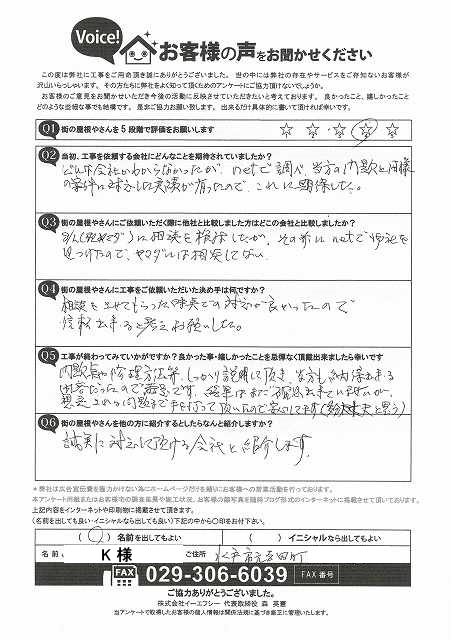 Voice!
お客様の声をお聞かせください
この度は弊社に工事をご用命頂き誠にありがとうございました。世の中には弊社の存在やサービスをご存知ないお客様が
沢山いらっしゃいます。その方たちに弊社をよく知って頂くためのアンケートにご協力頂けないでしょうか。
お客様のご意見をお聞かせいただき今後の活動に反映させていただきたいと考えております。良かったこと、嬉しかったこと
どのような些細な事でも結構です。是非ご協力お願い致します。出来るだけ具体的に書いて頂ければ幸いです。
Q1 街の屋根やさんを5段階で評価をお願いします
Q2 当初、工事を依頼する会社にどんなことを期待されていましたか?
どんな会社かわからなかったが、netで調べ、当方の問題と同様
の案件に対応した実績が有ったので、これに期待した。
Q3 街の屋根やさんにご依頼いただく際に他社と比較しました方はどこの会社と比較しましたか?
に相談を検討したが、その前にnetで御社を
見つけたので、ヤマダには相談してない。
Q4 街の屋根やさんに工事をご依頼いただいた決め手は何ですか?
相談をさせてもらった時点での対応が良かったので
信頼出来ると考えお願いした。
Q5 工事が終わってみていかがですか?良かった事・嬉しかったことを忌憚なく頂戴出来ましたら幸いです
問題点や修理方法等、しっかり説明して頂き、当方も納得出来る
内容だったので満足です。結果はまだ確認出来ていませんが、
想定される問題まで手を打って頂いたので安心してます(多分大丈夫と思う)
Q6 街の屋根やさんを他の方に紹介するとしたらなんと紹介しますか?
誠実に対応して頂ける会社と紹介します。
*弊社は広告宣伝費を極力かけない為にホームページだけを頼りにお客様への営業活動を行っております。
本アンケート用紙またはお客様宅の調査風景や施工状況、お客様の顔写真を随時ブログ形式のインターネットに掲載させて頂いております。
上記内容をインターネットや印刷物に掲載させて頂きます。
(名前を出しても良い・イニシャルなら出しても良い)下記の中から〇印をお付け下さい。
(〇)名前を出してもよい ( )イニシャルなら出してもよい
名前 K 様 ご住所 水戸市元吉田町
FAX 029-306-6039 FAX番号
ご協力ありがとうございました。
株式会社イーエフシー 代表取締役 森 英憲
当アンケートで取得したお客様の個人情報は関係法規に基づき厳正に管理いたします。